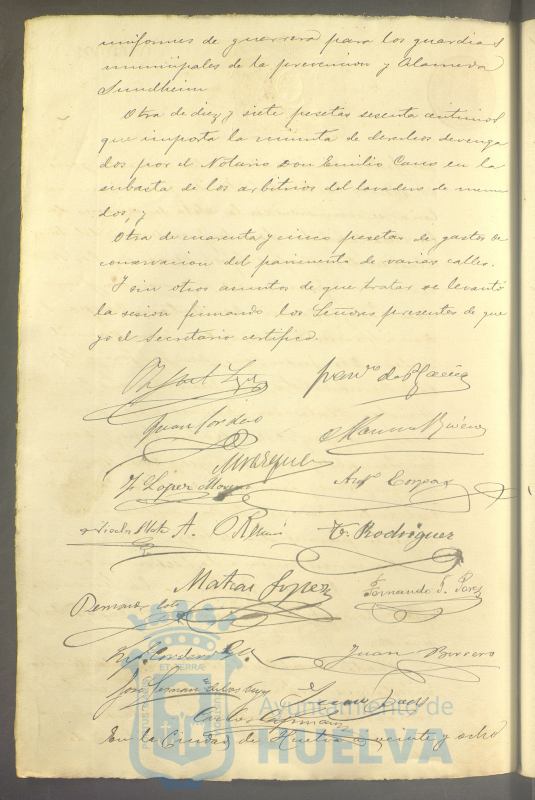 uniformes de guerrera para los guardias
municipales de la prevencion y Alameda
Sundheim
Otra de diez y siete pesetas sesenta centimos
que importa la minuta de derechos devenga
dos por el Notario Don Emilio Cano en la
subasta de los arbitrios del lavadero de menu
dos, y
Otra de cuarenta y cinco pesetas de gastos de
conservacion del pavimento de varias calles.
Y sin otros asuntos de que tratar se levantó
la sesion firmando los Señores presentes de que
yo el Secretario certifico.
Juan Cordero
Manuel
M Vazquez
López Moreno
Antº
A.
T. Rodriguez
Matias Lopez
Fernando T. Perez
Cordero
Juan Borrero
José
Carlos
En la Ciudad de Huelva a veinte y ocho
PORTUS MARIS
ET TERRÆ
Ayuntamiento de
HUELVA